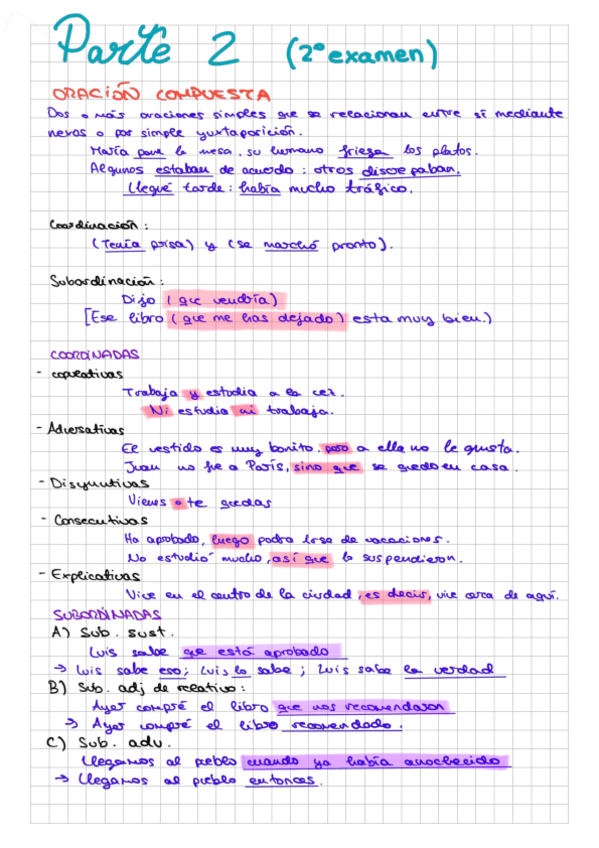 Parte 2 (2º examen)
ORACIÓN COMPUESTA
Dos o más oraciones simples que se relacionan entre sí mediante
nexos o por simple yuxtaposición.
María pone la mesa, su hermano friega los platos.
Algunos estaban de acuerdo: otros discrepaban.
Llegué tarde: había mucho tráfico.
Coordinación:
(Tenía prisa) y (se marchó pronto).
Subordinación:
Dijo (que vendría)
[Ese libro (que me has dejado) esta muy bien.)
COORDINADAS
- copulativas
Trabaja y estudia a la vez.
Ni estudia ni trabaja.
- Adversativas
El vestido es muy bonito, pero a ella no le gusta.
Juan no fue a París, sino que se quedo en casa.
- Disyuntivas
Vienes o te quedas
- Consecutivas
Ha aprobado, luego podra irse de vacaciones.
No estudió mucho, así que lo suspendieron.
- Explicativas
Vive en el centro de la ciudad, es decir, vive cerca de aquí.
SUBORDINADAS
A) Sub. sust.
Luis sabe que está aprobado
→ Luis sabe eso; Luis lo sabe; Luis sabe la verdad
B) Sub. adj de relativo:
Ayer compré el libro que nos recomendaron
→ Ayer compré el libro recomendado.
C) Sub. adv.
Llegamos al pueblo cuando ya había anochecido
→ Llegamos al pueblo entonces.